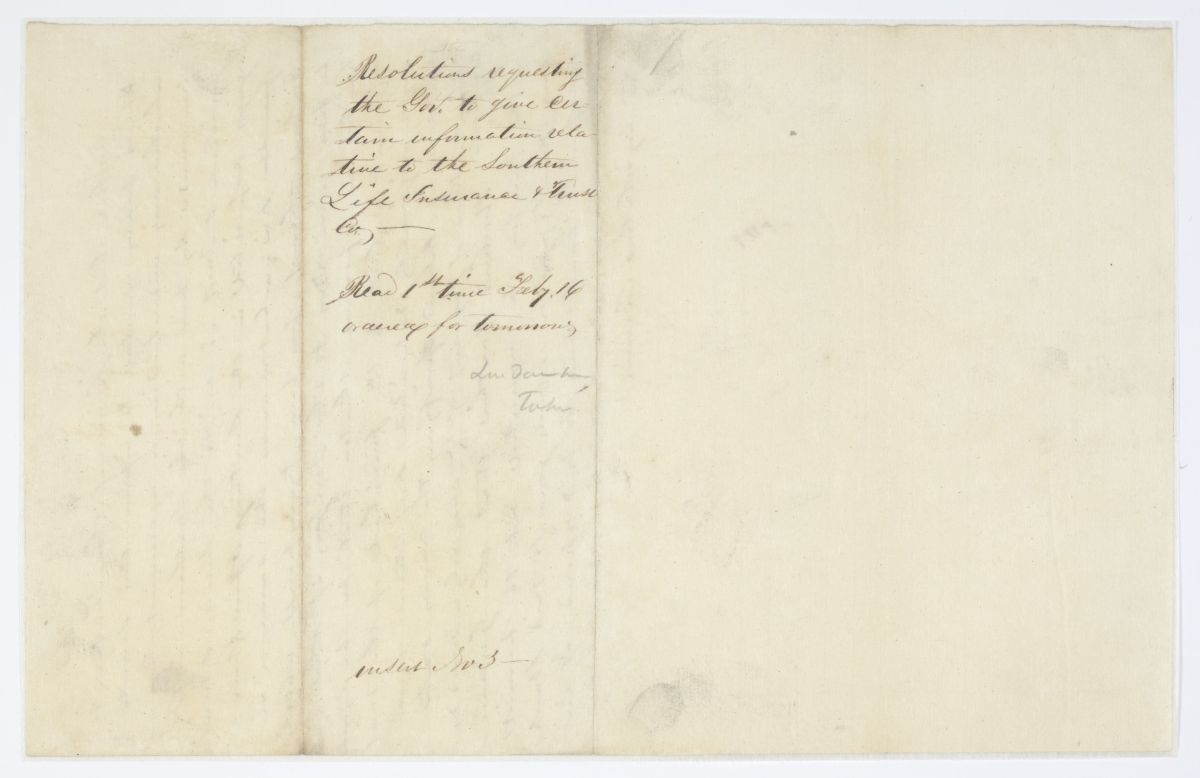 Resolutions requesting
the Gov. to give cer-
tain information rela-
tive to the Southern
Life Insurance & Trust
Co, —
Read 1st time Feby. 16
ordered for tomorrow,
insert No 3 —